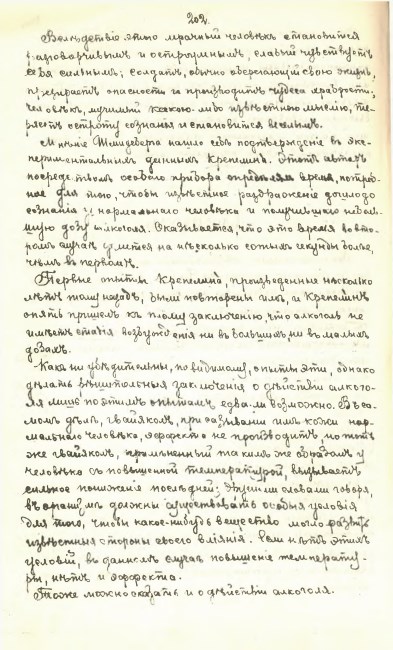 202.
Вслѣдствіе этого мрачный человѣкъ становится
разговорчивымъ и остроумнымъ, слабый чувствуетъ
себя сильнымъ; солдатъ, обычно оберегающій свою жизнь,
презираетъ опасность и производитъ чудеса храбрости;
человѣкъ, мучимый какою-либо извѣстною мыслію, те-
ряетъ остроту сознанія и становится веселымъ.
Мнѣніе Шмидеберга нашло себѣ подтвержденіе въ экс-
периментальныхъ данныхъ Крепелина. Этотъ авторъ
посредствомъ особаго прибора опредѣлялъ время, потреб-
ное для того, чтобы извѣстное раздраженіе дошло до
сознанія у нормальнаго человѣка и получившаго неболь-
шую дозу алкоголя. Оказывается, что это время во вто-
ромъ случаѣ длится на нѣсколько сотыхъ секунды болѣе,
чѣмъ въ первомъ.
Первые опыты Крепелина, произведенные нѣсколько
лѣтъ тому назадъ, были повторены имъ, и Крепелинъ
опять пришелъ къ тому заключенію, что алкоголь не
имѣетъ стадія возбужденія ни въ большихъ, ни въ малыхъ
дозахъ.
Какъ ни убѣдительны, по видимому, опыты эти, однако
дѣлать рѣшительныя заключенія о дѣйствіи алкого-
ля лишь по этимъ опытамъ едва-ли возможно. Въ са-
момъ дѣлѣ, гваяколъ, при смазываніи имъ кожи нор-
мальнаго человѣка, эффекта не производитъ, но тотъ
же гваяколъ, примѣненный такимъ же образомъ у
человѣка съ повышенной температурой, вызываетъ
сильное пониженіе послѣдней; другими словами говоря,
въ организмѣ должны существовать особыя условія
для того, чтобы какое-нибудь вещество могло развить
извѣстныя стороны своего вліянія. Если нѣтъ этихъ
условій, въ данномъ случаѣ повышеніе температу-
ры, нѣтъ и эффекта.
Тоже можно сказать и о дѣйствіи алкоголя.